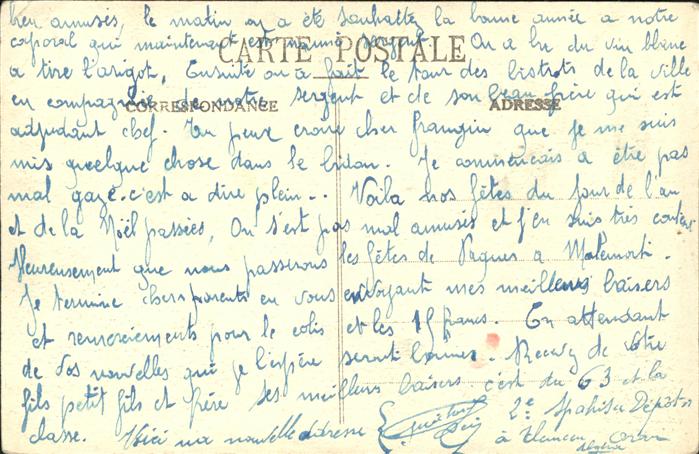 bien amusés, le matin on a été souhaiter la bonne année a notre
caporal qui maintenant est nommé sergent. On a bu du vin blanc
CARTE POSTALE
a tire l'arigot, Ensuite on a fait le tour des bistrots de la ville
en compagnie de notre sergent et de son beau frère qui est
CORRESPONDANCE
ADRESSE
adjudant chef. Tu peux croire cher frangin que je me suis
mis quelque chose dans le bidon. Je commencais a être pas
mal gazé. c'est a dire plein.. Voila nos fêtes du jour de l'an
et de la Noël passées, On s'est pas mal amusés et j'en suis très content
Heureusement que nous passerons les fêtes de Paques a Malemort.
Je termine chers parents en vous envoyant mes meilleurs baisers
et remerciements pour le colis et les 15 francs. En attendant
de vos nouvelles que je l'espère seront bonnes. Recevez de votre
fils petit fils et frère ses meilleurs baisers c'est du 63 et la
classe. Voici ma nouvelle adresse
2e Spahis Dépôt
à Tlemcen Oran
Algérie